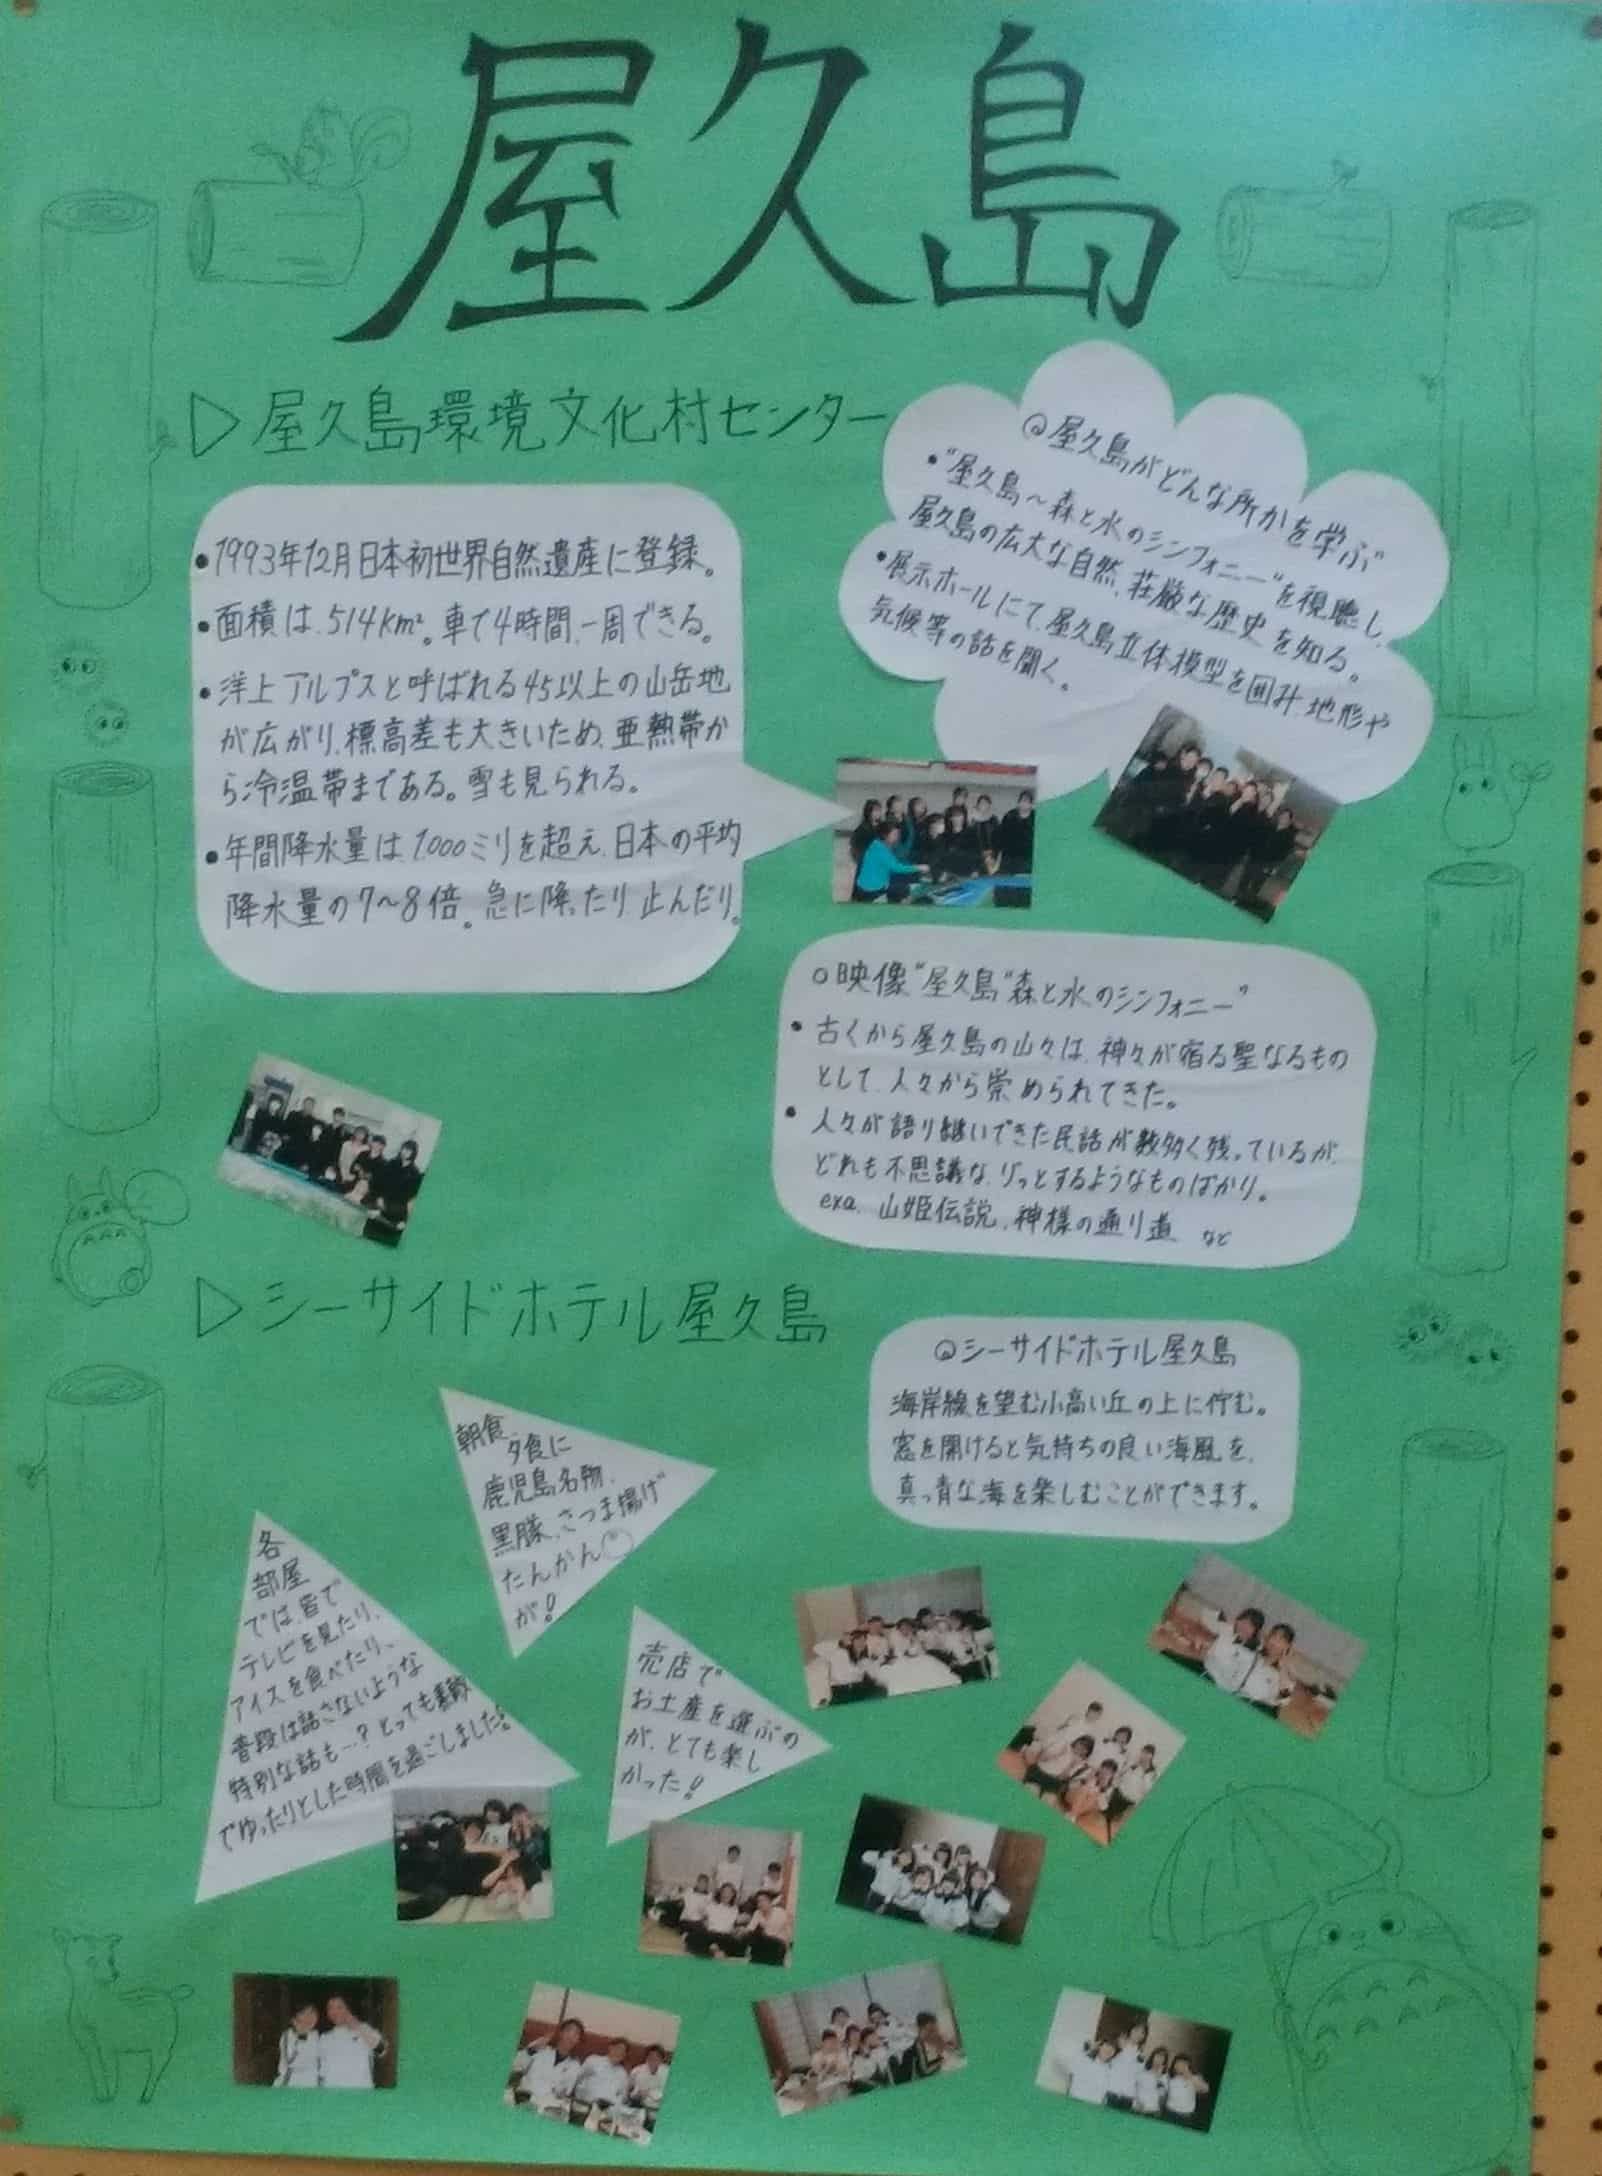 屋久島
▷屋久島環境文化村センター
◎屋久島がどんな所かを学ぶ
•"屋久島～森と水のシンフォニー"を視聴し、
屋久島の広大な自然、荘厳な歴史を知る。
•展示ホールにて、屋久島立体模型を囲み、地形や
気候等の話を聞く。
•1993年12月日本初世界自然遺産に登録。
•面積は、514km²。車で4時間、一周できる。
•洋上アルプスと呼ばれる45以上の山岳地
が広がり、標高差も大きいため、亜熱帯か
ら冷温帯まである。雪も見られる。
•年間降水量は1000ミリを超え、日本の平均
降水量の7～8倍。急に降ったり止んだり。
○映像"屋久島"森と水のシンフォニー"
•古くから屋久島の山々は、神々が宿る聖なるもの
として、人々から崇められてきた。
•人々が語り継いできた民話が数多く残っているが、
どれも不思議な、ゾっとするようなものばかり。
exa. 山姫伝説、神様の通り道 など
▷シーサイドホテル屋久島
◎シーサイドホテル屋久島
海岸線を望む小高い丘の上に佇む。
窓を開けると気持ちの良い海風を、
真っ青な海を楽しむことができます。
朝食、
夕食に
鹿児島名物、
黒豚、さつま揚げ
たんかん
が!
各
部屋
では、皆で
テレビを見たり、
アイスを食べたり、
普段は話さないような
特別な話も…?とっても素敵
でゆったりとした時間を過ごしました!
売店で
お土産を選ぶの
が、とても楽し
かった!